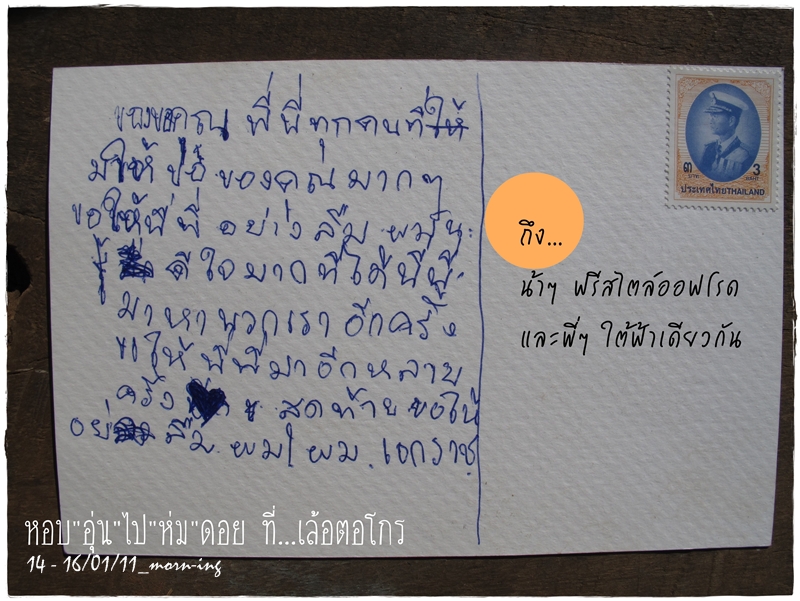 ขอบขอคุณ พี่ พี่ ทุกคนที่ให้
มาให้ ของคุณมากๆ
ขอให้พี่พี่ อย่าง ลืม ผมนะ
ดีใจมากที่ได้พี่พี่
มาหาพวกเรา อีกครั้ง
ขอให้ พี่พี่มาอีกหลาย
ครั้ง สุดท้าย ขอให้
อย่า ลืม ผม ผม เอกราช
๓ บาท 3 BAHT
ประเทศไทย THAILAND
ถึง...
น้าๆ ฟรีสไตล์ออฟโรด
และพี่ๆ ใต้ฟ้าเดียวกัน
หอบ"อุ่น"ไป"ห่ม"ดอย ที่...เล้อตอโกร
14 - 16/01/11_morn-ing